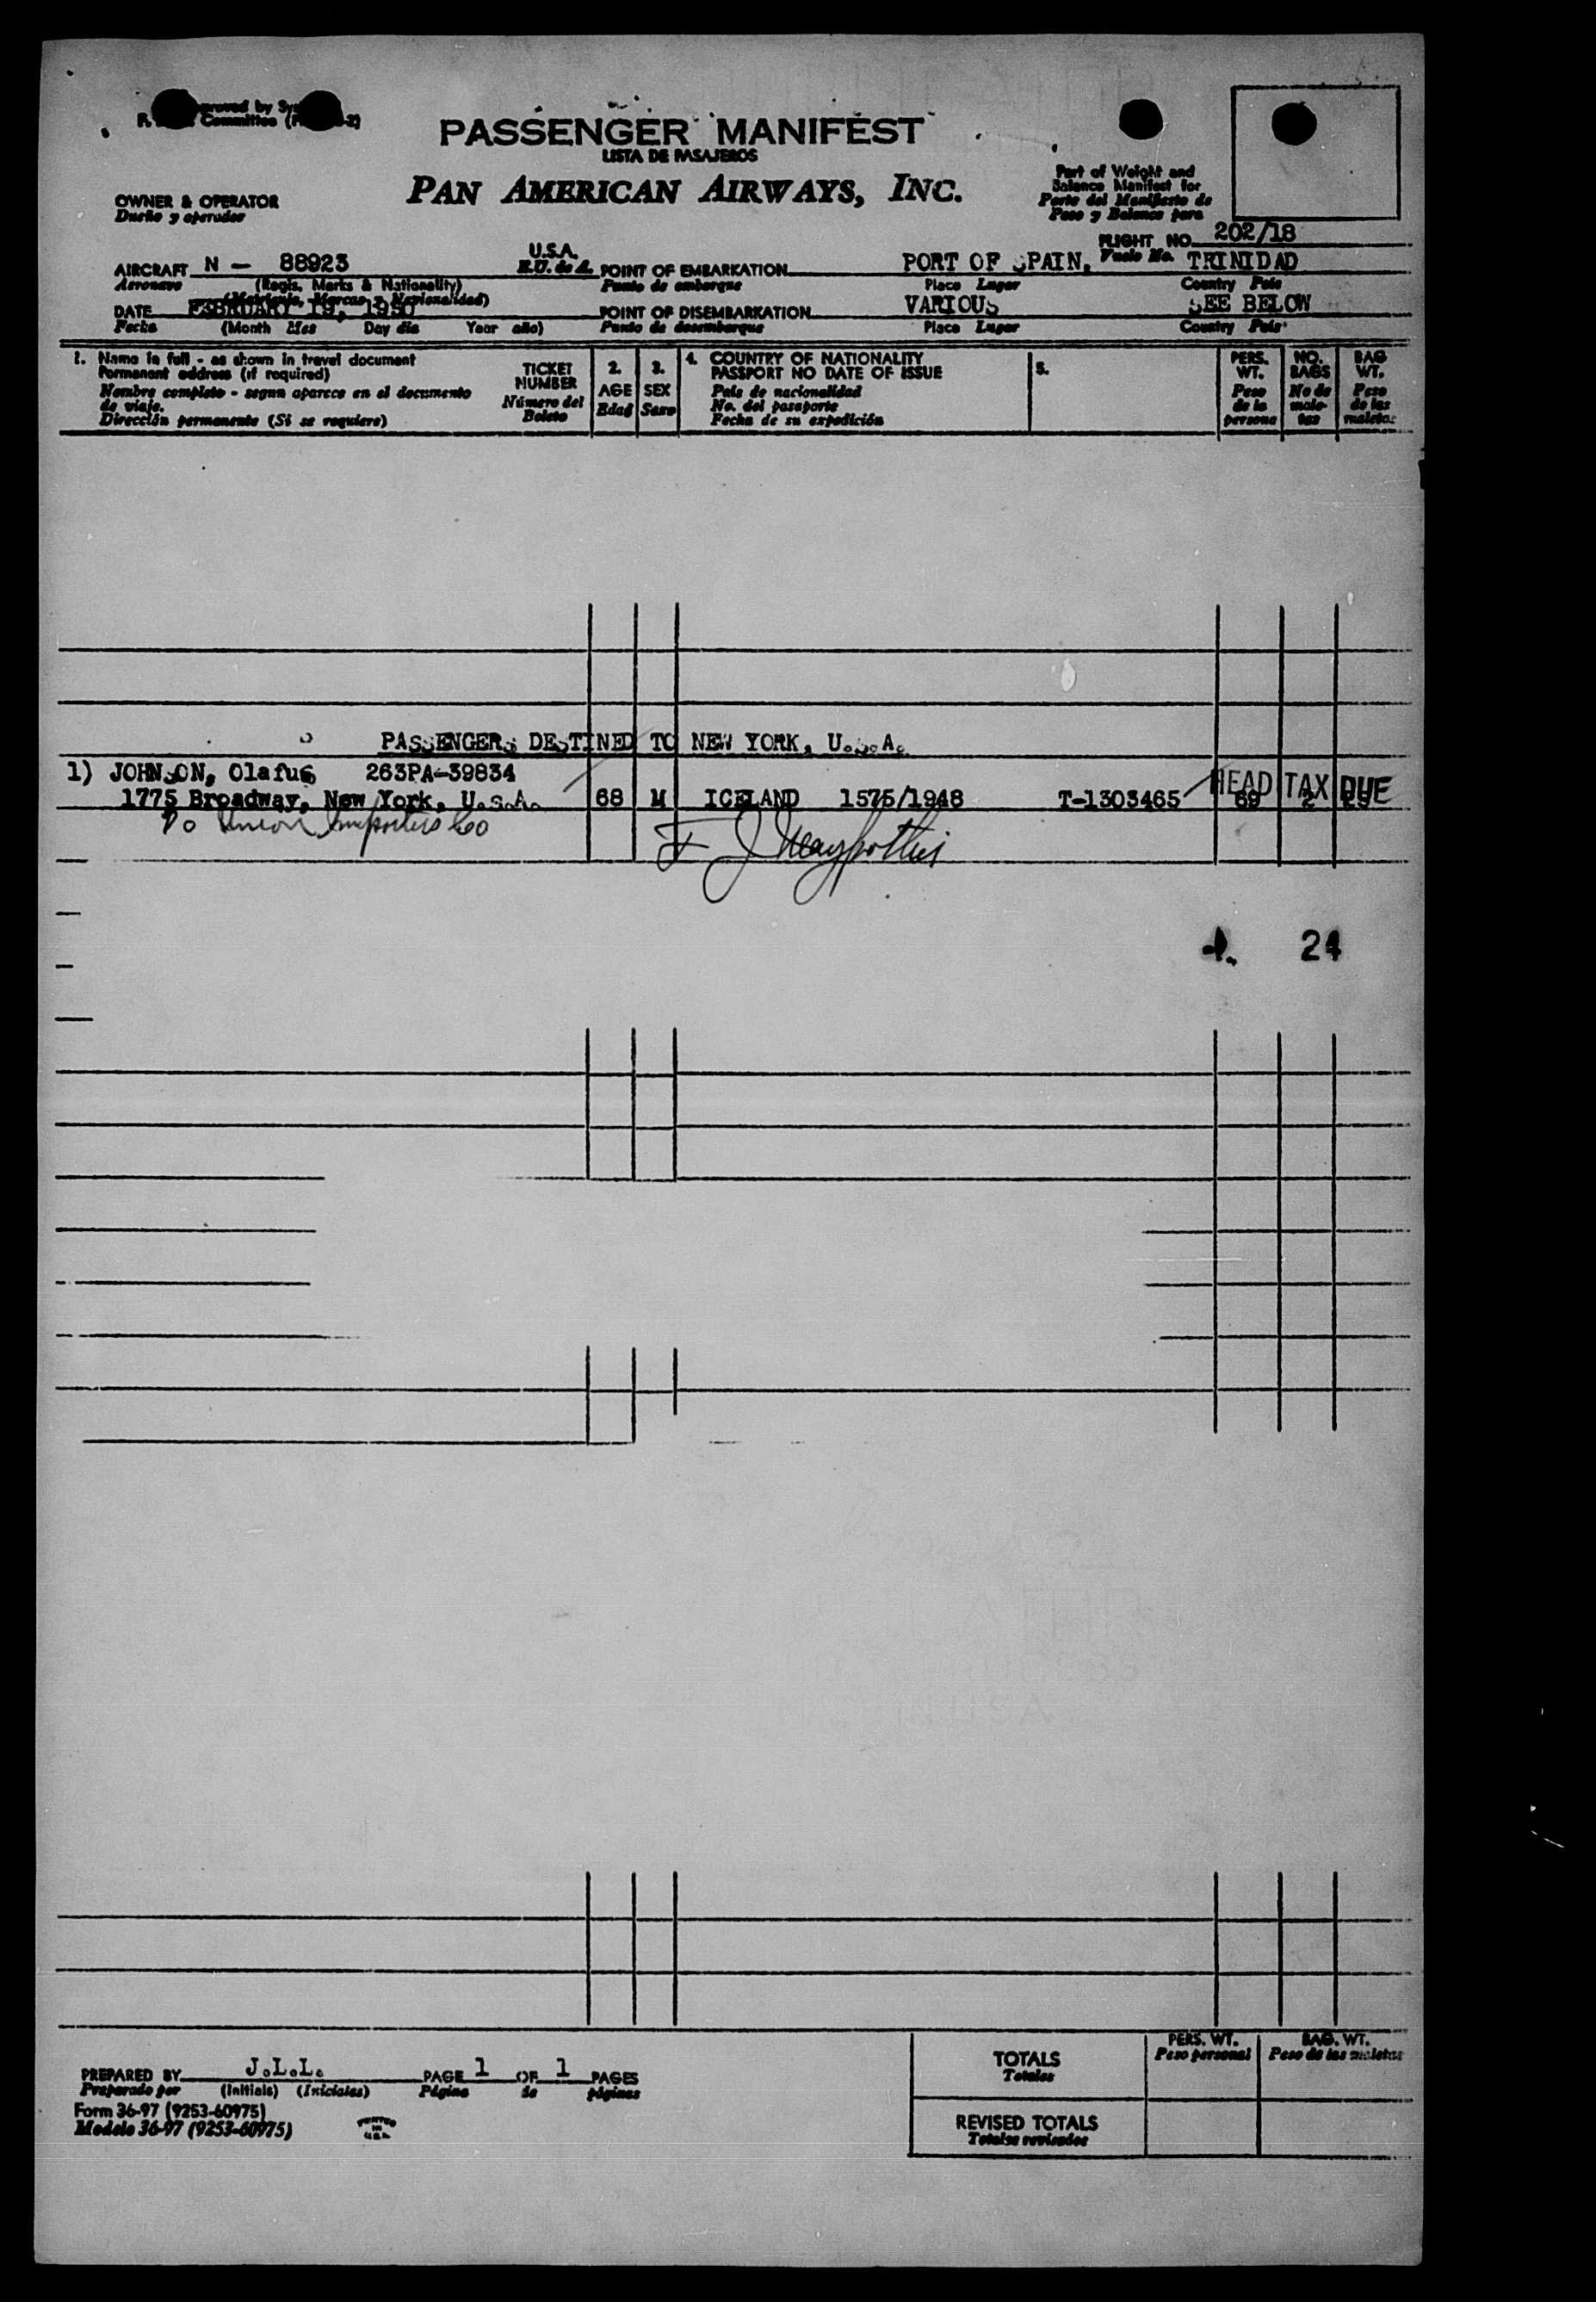 PASSENGER MANIFEST
LISTA DE PASAJEROS
PAN AMERICAN AIRWAYS, INC.
OWNER & OPERATOR
Dueño y operador
Part of Weight and
Balance Manifest for
Parte del Manifiesto de
Peso y Balance para
FLIGHT NO. 202/18
Vuelo No.
AIRCRAFT N - 88923 U.S.A.
Aeronave (Regis. Marks & Nationality) E.U. de A.
(Matricula, Marcas y Nacionalidad)
POINT OF EMBARKATION PORT OF SPAIN, TRINIDAD
Punto de embarque Place Lugar Country País
DATE FEBRUARY 19, 1950
Fecha (Month Mes Day día Year año)
POINT OF DISEMBARKATION VARIOUS SEE BELOW
Punto de desembarque Place Lugar Country País
1. Name in full - as shown in travel document
Permanent address (if required)
Nombre completo - segun aparece en el documento
de viaje.
Dirección permanente (Si se requiere)
TICKET
NUMBER
Número del
Boleto
2.
AGE
Edad
3.
SEX
Sexo
4. COUNTRY OF NATIONALITY
PASSPORT NO DATE OF ISSUE
País de nacionalidad
No. del pasaporte
Fecha de su expedición
5.
PERS.
WT.
Peso
de la
persona
NO.
BAGS
No de
male-
tas
BAG
WT.
Peso
de las
maletas
PASSENGERS DESTINED TO NEW YORK, U.S.A.
1) JOHNSON, Olafus 263PA-39834
HEAD TAX DUE
1775 Broadway, New York, U.S.A. 68 M ICELAND 1575/1948 T-1303465 69 2
c/o Union Importers Co
24
PREPARED BY J.L.L. PAGE 1 OF 1 PAGES
Preparado por (Initials) (Iniciales) Página de páginas
Form 36-97 (9253-60975)
Modelo 36-97 (9253-60975)
PRINTED
IN
U.S.A.
PERS. WT.
Peso personal
BAG. WT.
Peso de las maletas
TOTALS
Totales
REVISED TOTALS
Totales revisados